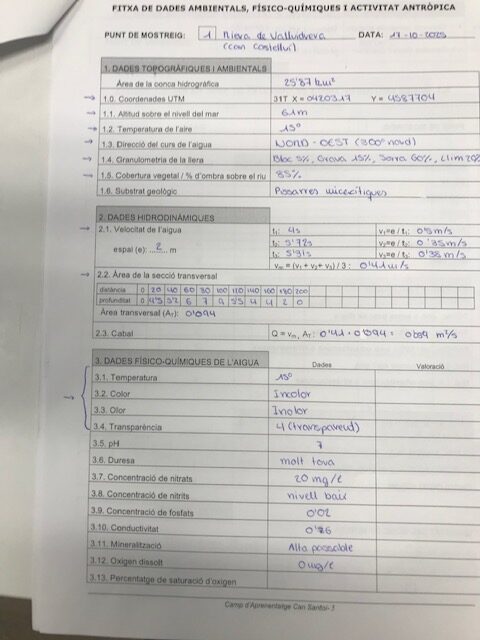 FITXA DE DADES AMBIENTALS, FÍSICO-QUÍMIQUES I ACTIVITAT ANTRÒPICA
PUNT DE MOSTREIG: 1 Riera de Vallvidrera DATA: 17-10-2025
(can Castellví)
1. DADES TOPOGRÀFIQUES I AMBIENTALS
Àrea de la conca hidrogràfica 25'87 km²
→ 1.0. Coordenades UTM 31T X = 0420317 Y = 4587704
→ 1.1. Altitud sobre el nivell del mar 61m
→ 1.2. Temperatura de l'aire 15º
→ 1.3. Direcció del curs de l'aigua NORD-OEST (300º nord)
→ 1.4. Granulometria de la llera Bloc 5%, Grava 15%, Sorra 60%, Llim 20%
→ 1.5. Cobertura vegetal / % d'ombra sobre el riu 85%
1.6. Substrat geològic Pissarres micacítiques
2. DADES HIDRODINÀMIQUES
→ 2.1. Velocitat de l'aigua t₁: 4s v₁=e / t₁: 0'5 m/s
espai (e): ...2... m t₂: 5'72s v₂=e / t₂: 0'35 m/s
t₃: 5'31s v₃=e / t₃: 0'38 m/s
vₘ = (v₁ + v₂ + v₃) / 3 : 0'41 m/s
→ 2.2. Àrea de la secció transversal
distància 0 20 40 60 80 100 120 140 160 180 200
profunditat 0 4'5 5'2 6 7 9 5'5 4 4 2 0
Àrea transversal (Aₜ): 0'094
2.3. Cabal Q = vₘ . Aₜ : 0'41 · 0'094 = 0'039 m³/s
3. DADES FÍSICO-QUÍMIQUES DE L'AIGUA Dades Valoració
3.1. Temperatura 15º
→ 3.2. Color Incolor
3.3. Olor Inolor
3.4. Transparència 4 (transparent)
3.5. pH 7
3.6. Duresa molt tova
3.7. Concentració de nitrats 20 mg/l
3.8. Concentració de nitrits nivell baix
3.9. Concentració de fosfats 0'02
3.10. Conductivitat 0'86
3.11. Mineralització Alta passable
3.12. Oxigen dissolt 0 mg/l
3.13. Percentatge de saturació d'oxigen
Camp d'Aprenentatge Can Santoi- 3